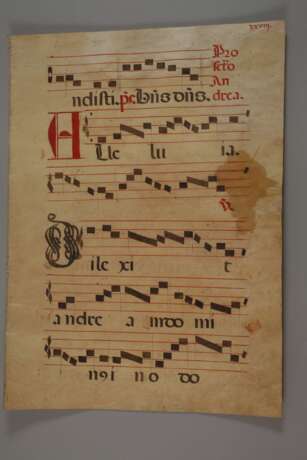 xxviij.
Pro
scto
An
drea.
ndisti. ps. Bñs dñs.
A lle lu ia.
℣.
D ile xi t
andre a mdo mi
n9i n o do